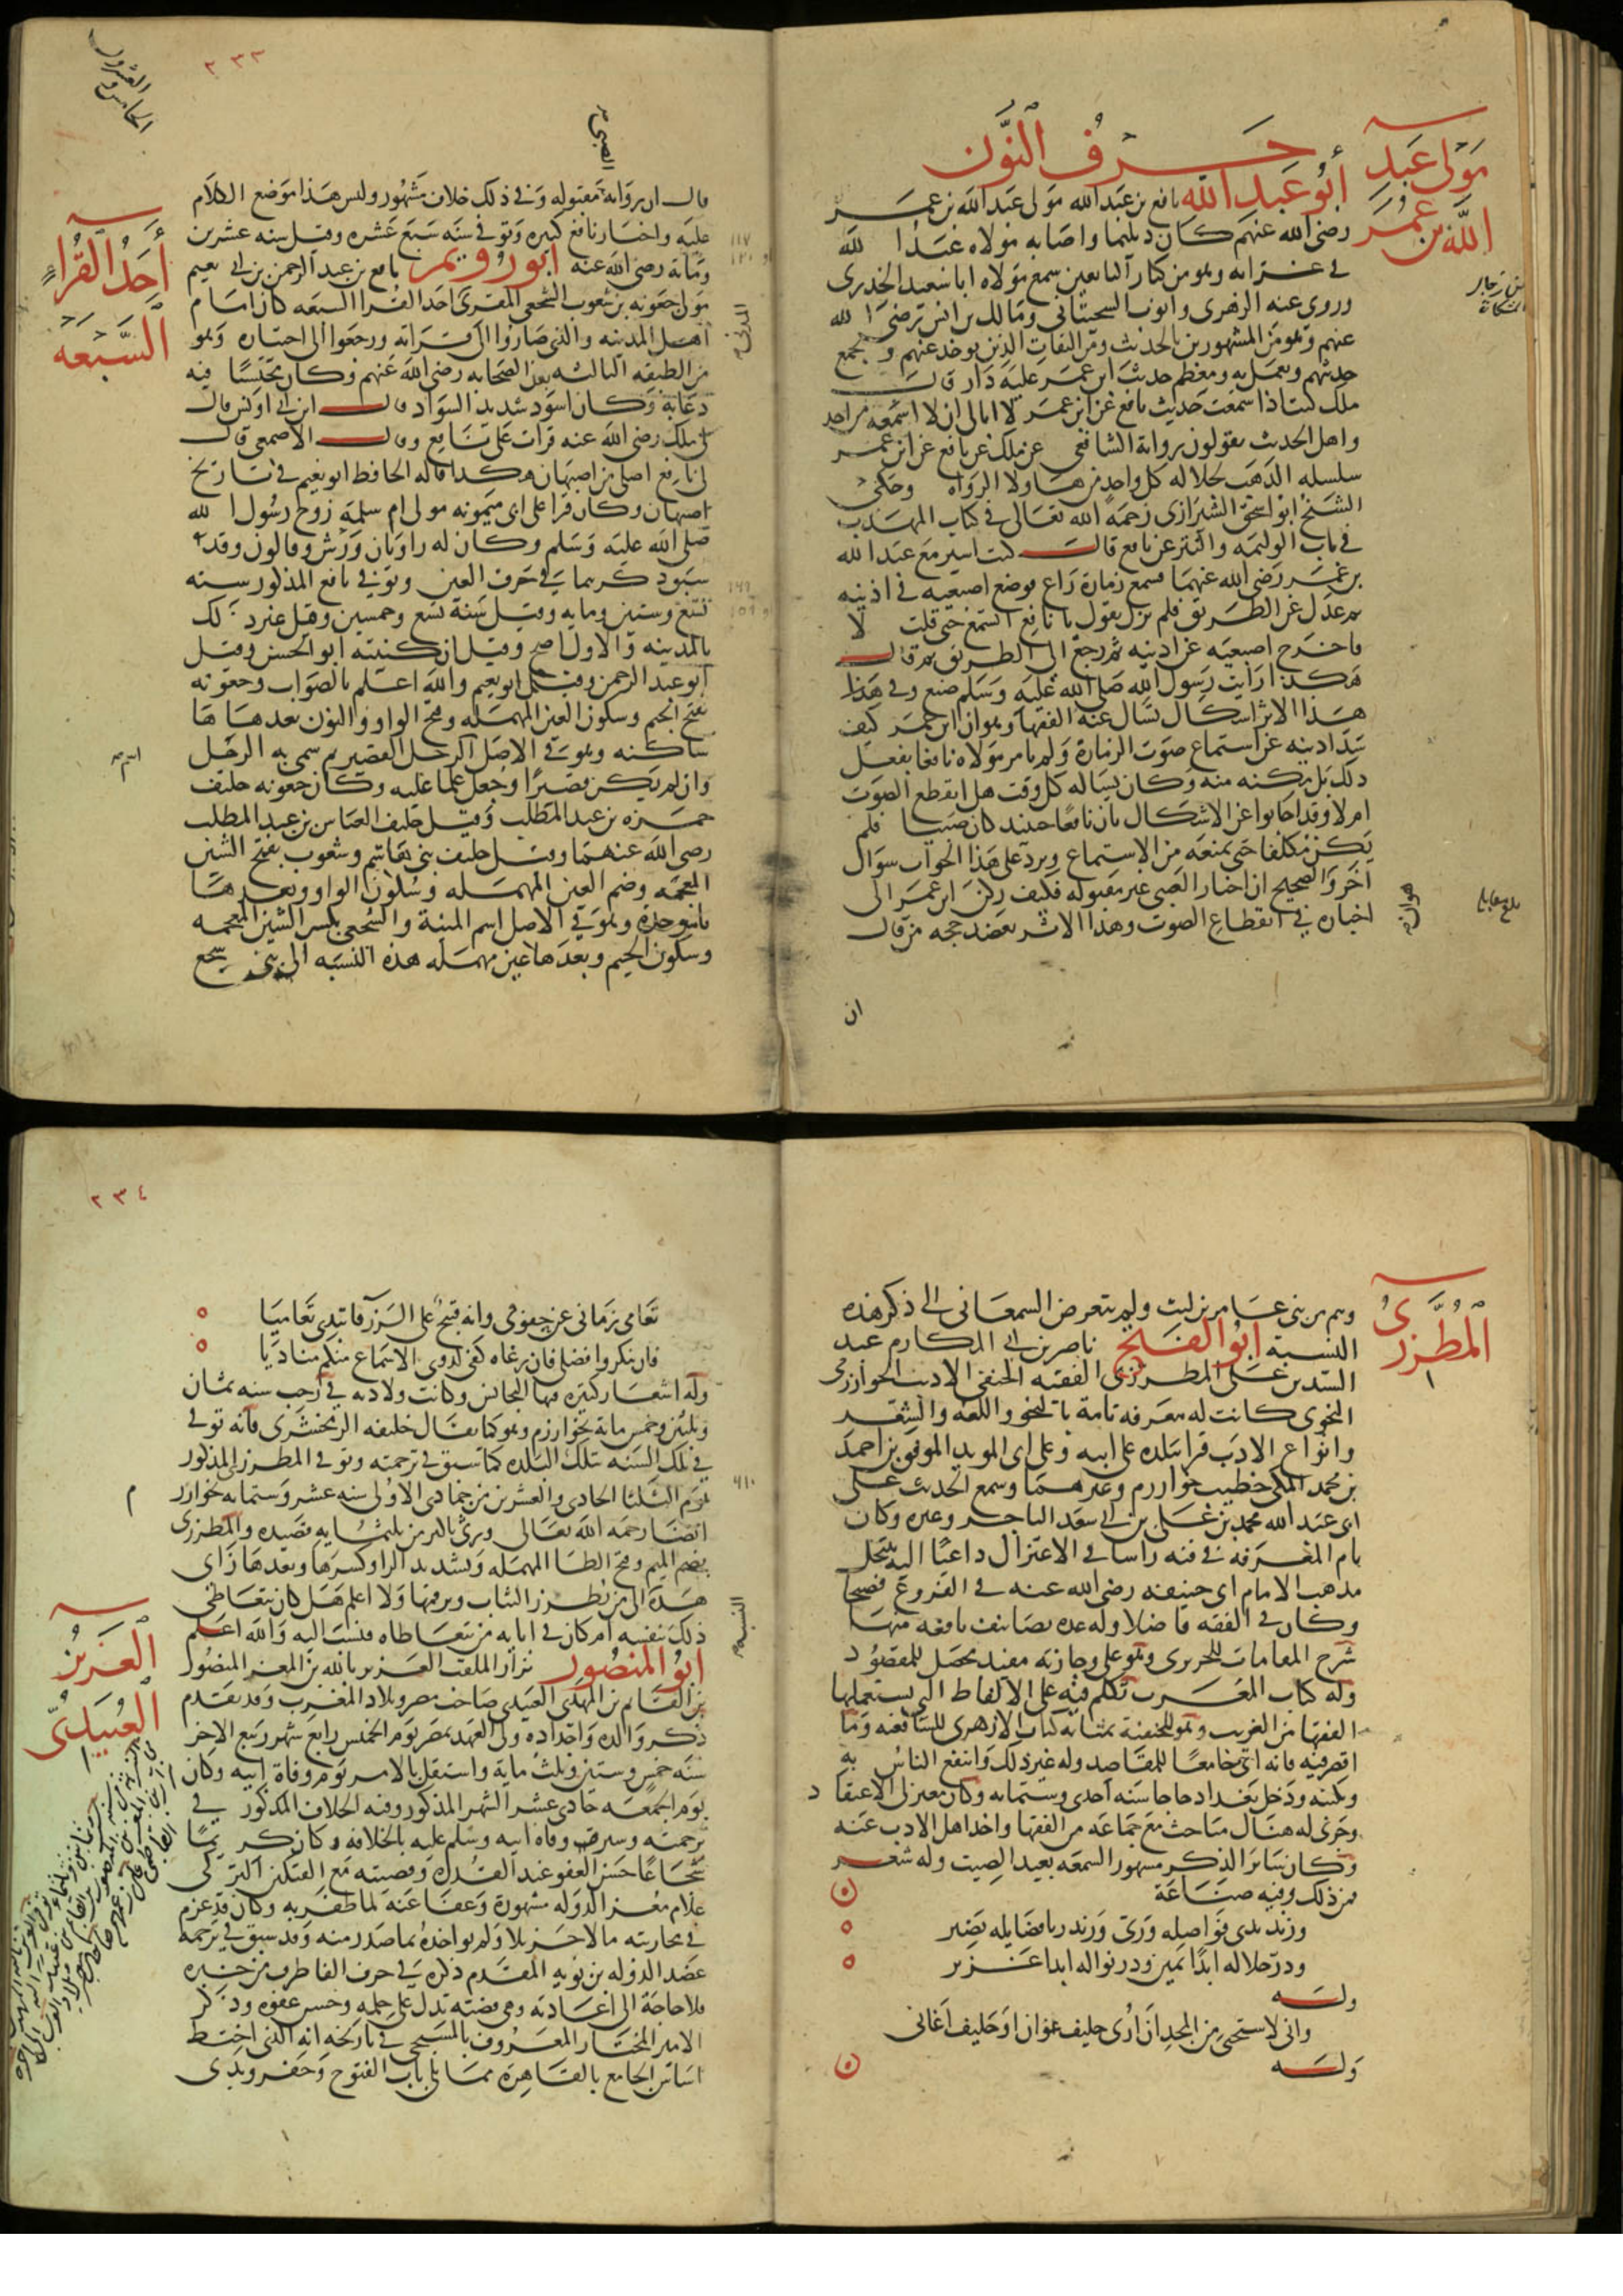 حرف النون
مولى عبد الله بن عمر
أبو عبد الله نافع بن عبد الله مولى عبد الله بن عمر
رضي الله عنهم كان ديلميا واصابه مولاه عبد الله
في غزاته وهو من كبار التابعين سمع مولاه وابا سعيد الخدري
وروى عنه الزهري وايوب السختياني ومالك بن انس رضي الله
عنهم وهو من المشهورين بالحديث ومن الثقات الذين يوخذ عنهم ويجمع
حديثهم ويعمل به ومعظم حديث ابن عمر عليه دار قال
ملك كنت اذا سمعت حديث نافع عن ابن عمر لا ابالي ان لا اسمعه من احد
واهل الحديث يقولون رواية الشافعي عن ملك عن نافع عن ابن عمر
سلسلة الذهب لجلالة كل واحد من هاولا الرواه وحكى
الشيخ ابو اسحق الشيرازي رحمه الله تعالى في كتاب المهذب
في باب الوليمه والنثر عن نافع قال كنت اسير مع عبد الله
بن عمر رضي الله عنهما فسمع زمارة راع فوضع اصبعيه في اذنيه
ثم عدل عن الطريق فلم يزل يقول يا نافع اتسمع حتى قلت لا
فاخرج اصبعيه عن اذنيه ثم رجع الى الطريق ثم قال
هكذا رايت رسول الله صلى الله عليه وسلم صنع وفي هذا
هذا الاثر اشكال تسال عنه الفقها وهو ان ابن عمر كيف
سد اذنيه عن استماع صوت الزمارة ولم يامر مولاه نافعا بفعل
ذلك بل مكنه منه وكان يساله كل وقت هل انقطع الصوت
ام لا وقد اجابوا عن الاشكال بان نافعا حينئذ كان صبيا فلم
يكن مكلفا حتى يمنعه من الاستماع ويرد على هذا الجواب سوال
اخر والصحيح ان اخبار الصبي غير مقبوله فكيف ركن ابن عمر الى
اخباره في انقطاع الصوت وهذا الاثر يعضد حجه من قال
ان
٢٣٣
الخامس والعشرون
الصبي
قال ان رواية مقبوله وفي ذلك خلاف مشهور وليس هذا موضع الكلام
عليه واخبار نافع كثيره وتوفي سنه سبع عشره وقيل سنه عشرين
وماية رضي الله عنه ابو رويم نافع بن عبد الرحمن بن ابي نعيم
احد القرا السبعه
مولى جعونه بن شعوب الشجعي المقرى احد القرا السبعه كان امام
اهل المدينه والذي صاروا الى قراته ورجعوا الى اختياره وهو
من الطبقه الثالثه بعد الصحابه رضي الله عنهم وكان محتسبا فيه
دعابه وكان اسود شديد السواد قال ابن ابي اويس قال
لي ملك رضي الله عنه قرات على نافع وقال الاصمعي قال
لي نافع اصلي من اصبهان هكذا قاله الحافظ ابو نعيم في تاريخ
اصبهان وكان قرا على ابي ميمونه مولى ام سلمه زوج رسول الله
صلى الله عليه وسلم وكان له راويان ورش وقالون وقد
سبق ذكرهما في حرف العين وتوفي نافع المذكور سنه
تسع وستين وماية وقيل سنة تسع وخمسين وقيل غير ذلك
بالمدينه والاول اصح وقيل ان كنيته ابو الحسن وقيل
ابو عبد الرحمن وقيل ابو نعيم والله اعلم بالصواب وجعونه
بفتح الجيم وسكون العين المهمله وفتح الواو والنون بعدها ها
ساكنه وهو في الاصل الرجل القصير ثم سمي به الرجل
وان لم يكن قصيرا وجعل علما عليه وكان جعونه حليف
حمزه بن عبد المطلب وقيل حليف العباس بن عبد المطلب
رضي الله عنهما وقيل حليف بني هاشم وشعوب بفتح الشين
المعجمه وضم العين المهمله وسكون الواو وبعدها
با موحده وهو في الاصل اسم المنية والشجعي بكسر الشين المعجمه
وسكون الجيم وبعدها عين مهمله هذه النسبه الى بني شجع
وهم من بني عامر بن ليث ولم يتعرض السمعاني الى ذكر هذه
المطرزي
النسبة ابو الفتح ناصر بن ابي المكارم عبد
السيد بن علي المطرزي الفقيه الحنفي الاديب الخوارزمي
النحوي كانت له معرفه تامة بالنحو واللغه والشعر
وانواع الادب قرا ببلده على ابيه وعلى ابي المويد الموفق بن احمد
بن محمد المكي خطيب خوارزم وغيرهما وسمع الحديث على
ابي عبد الله محمد بن علي بن ابي سعد التاجر وغيره وكان
تام المعرفه في فنه راسا في الاعتزال داعيا اليه ينتحل
مذهب الامام ابي حنيفه رضي الله عنه في الفروع فصيحا
وكان في الفقه فاضلا وله عده تصانيف نافعه منها
شرح المقامات للحريري وهو على وجازته مفيد محصل للمقصود
وله كتاب المغرب تكلم فيه على الالفاظ التي يستعملها
الفقها من الغريب وهو للحنفية بمثابة كتاب الازهري للشافعيه وما
اقصر فيه فانه اتى جامعا للمقاصد وله غير ذلك وانتفع الناس به
وبكتبه ودخل بغداد حاجا سنه احدى وستمايه وكان معتزلي الاعتقاد
وجرى له هناك مباحث مع جماعه من الفقها واخذ اهل الادب عنه
وكان ساير الذكر مشهور السمعه بعيد الصيت وله شعر
فمن ذلك وفيه صناعة
وزند ندى فواضله وري ورند ربا فضايله نضير
ودر جلاله ابدا ثمين ودر نواله ابدا غزير
وله
واني لاستحيي من المجد ان ارى حليف غوان او حليف اغاني
وله
٢٣٤
تعامى زماني عن حقوقي وانه قبيح على الزرقا تبدي تعاميا
فان تنكروا فضلي فان رغاه كفى لذوي الاسماع منكم مناديا
وله اشعار كثيره فيها المجانس وكانت ولادته في رجب سنه ثمان
وثلثين وخمس ماية بخوارزم وهو كما يقال خليفه الزمخشري فانه توفي
في تلك السنه بتلك البلده كما سبق في ترجمته وتوفي المطرزي المذكور
يوم الثلثا الحادي والعشرين من جمادى الاولى سنه عشر وستمايه بخوارزم
ايضا رحمه الله تعالى ورثي باكثر من ثلثمايه قصيده والمطرزي
بضم الميم وفتح الطا المهمله وتشديد الرا وكسرها وبعدها زاي
هذه الى من يطرز الثياب ويرقمها ولا اعلم هل كان يتعاطى
النسبه
ذلك بنفسه ام كان في ابايه من يتعاطاه فنسب اليه والله اعلم
العزيز العبيدي
ابو المنصور نزار الملقب العزيز بالله بن المعز بن المنصور
بن القايم بن المهدي العبيدي صاحب مصر وبلاد المغرب وقد تقدم
ذكر والده واجداده ولي العهد بمصر يوم الخميس رابع شهر ربيع الاخر
سنه خمس وستين وثلث ماية واستقل بالامر يوم وفاة ابيه وكان
يوم الجمعه حادي عشر الشهر المذكور وفيه الخلاف المذكور في
ترجمته وسير وفاه ابيه وسلم عليه بالخلافه وكان كريما
شجاعا حسن العفو عند القدرة وقصيته مع افتكين التركي
غلام معز الدوله مشهورة وعفا عنه لما ظفر به وكان قد غرم
في محاربته مالا جزيلا ولم يواخذه بما صدر منه وقد سبق في ترجمه
عضد الدوله بن بويه المقدم ذكره في حرف الفا طرف من خبره
فلا حاجة الى اعادته وهي قضيته تدل على حلمه وحسن عفوه وذكر
الامير المختار المعروف بالمسبحي في تاريخه انه الذي اختط
اساس الجامع بالقاهرة مما يلي باب الفتوح وحفر وبدي